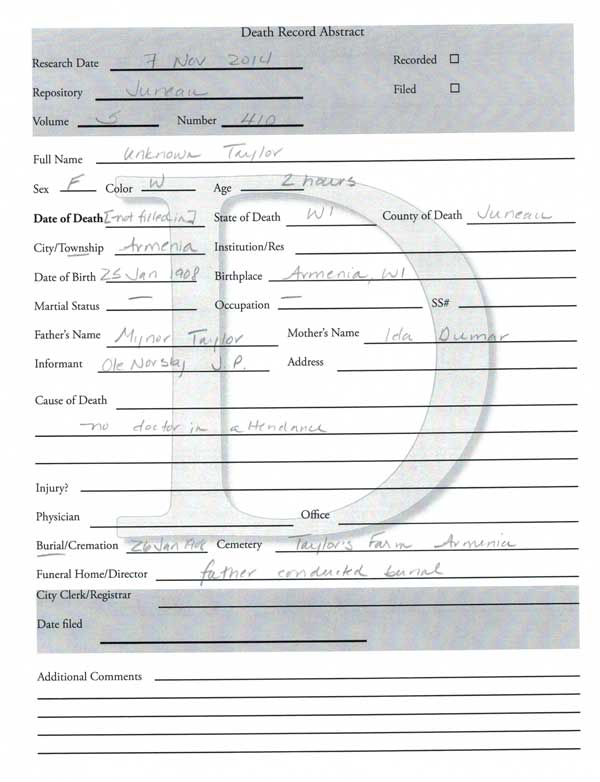 Death Record Abstract
Research Date 7 Nov 2014 Recorded ☐
Repository Juneau Filed ☐
Volume 5 Number 410
Full Name Unknown Taylor
Sex F Color W Age 2 hours
Date of Death [not filled in] State of Death WI County of Death Juneau
City/Township Armenia Institution/Res
Date of Birth 25 Jan 1908 Birthplace Armenia, WI
Martial Status — Occupation — SS#
Father's Name Mynor Taylor Mother's Name Ida Dumar
Informant Ole J.P. Address
Cause of Death
no doctor in attendance
Injury?
Physician Office
Burial/Cremation 26 Jan 1908 Cemetery Taylor's Farm Armenia
Funeral Home/Director father conducted burial
City Clerk/Registrar
Date filed
Additional Comments
D